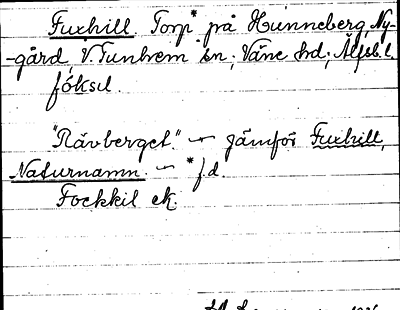 Fuxhill. Torp* på Hunneberg, Ny-
-gård, V. Tunhem sn; Väne hd; Älfsb. l.
föksɩl.
"Rävberget." ⁓ jämför Fuxhill,
Naturnamn. ⁓ * f.d.
Fockkil ek.